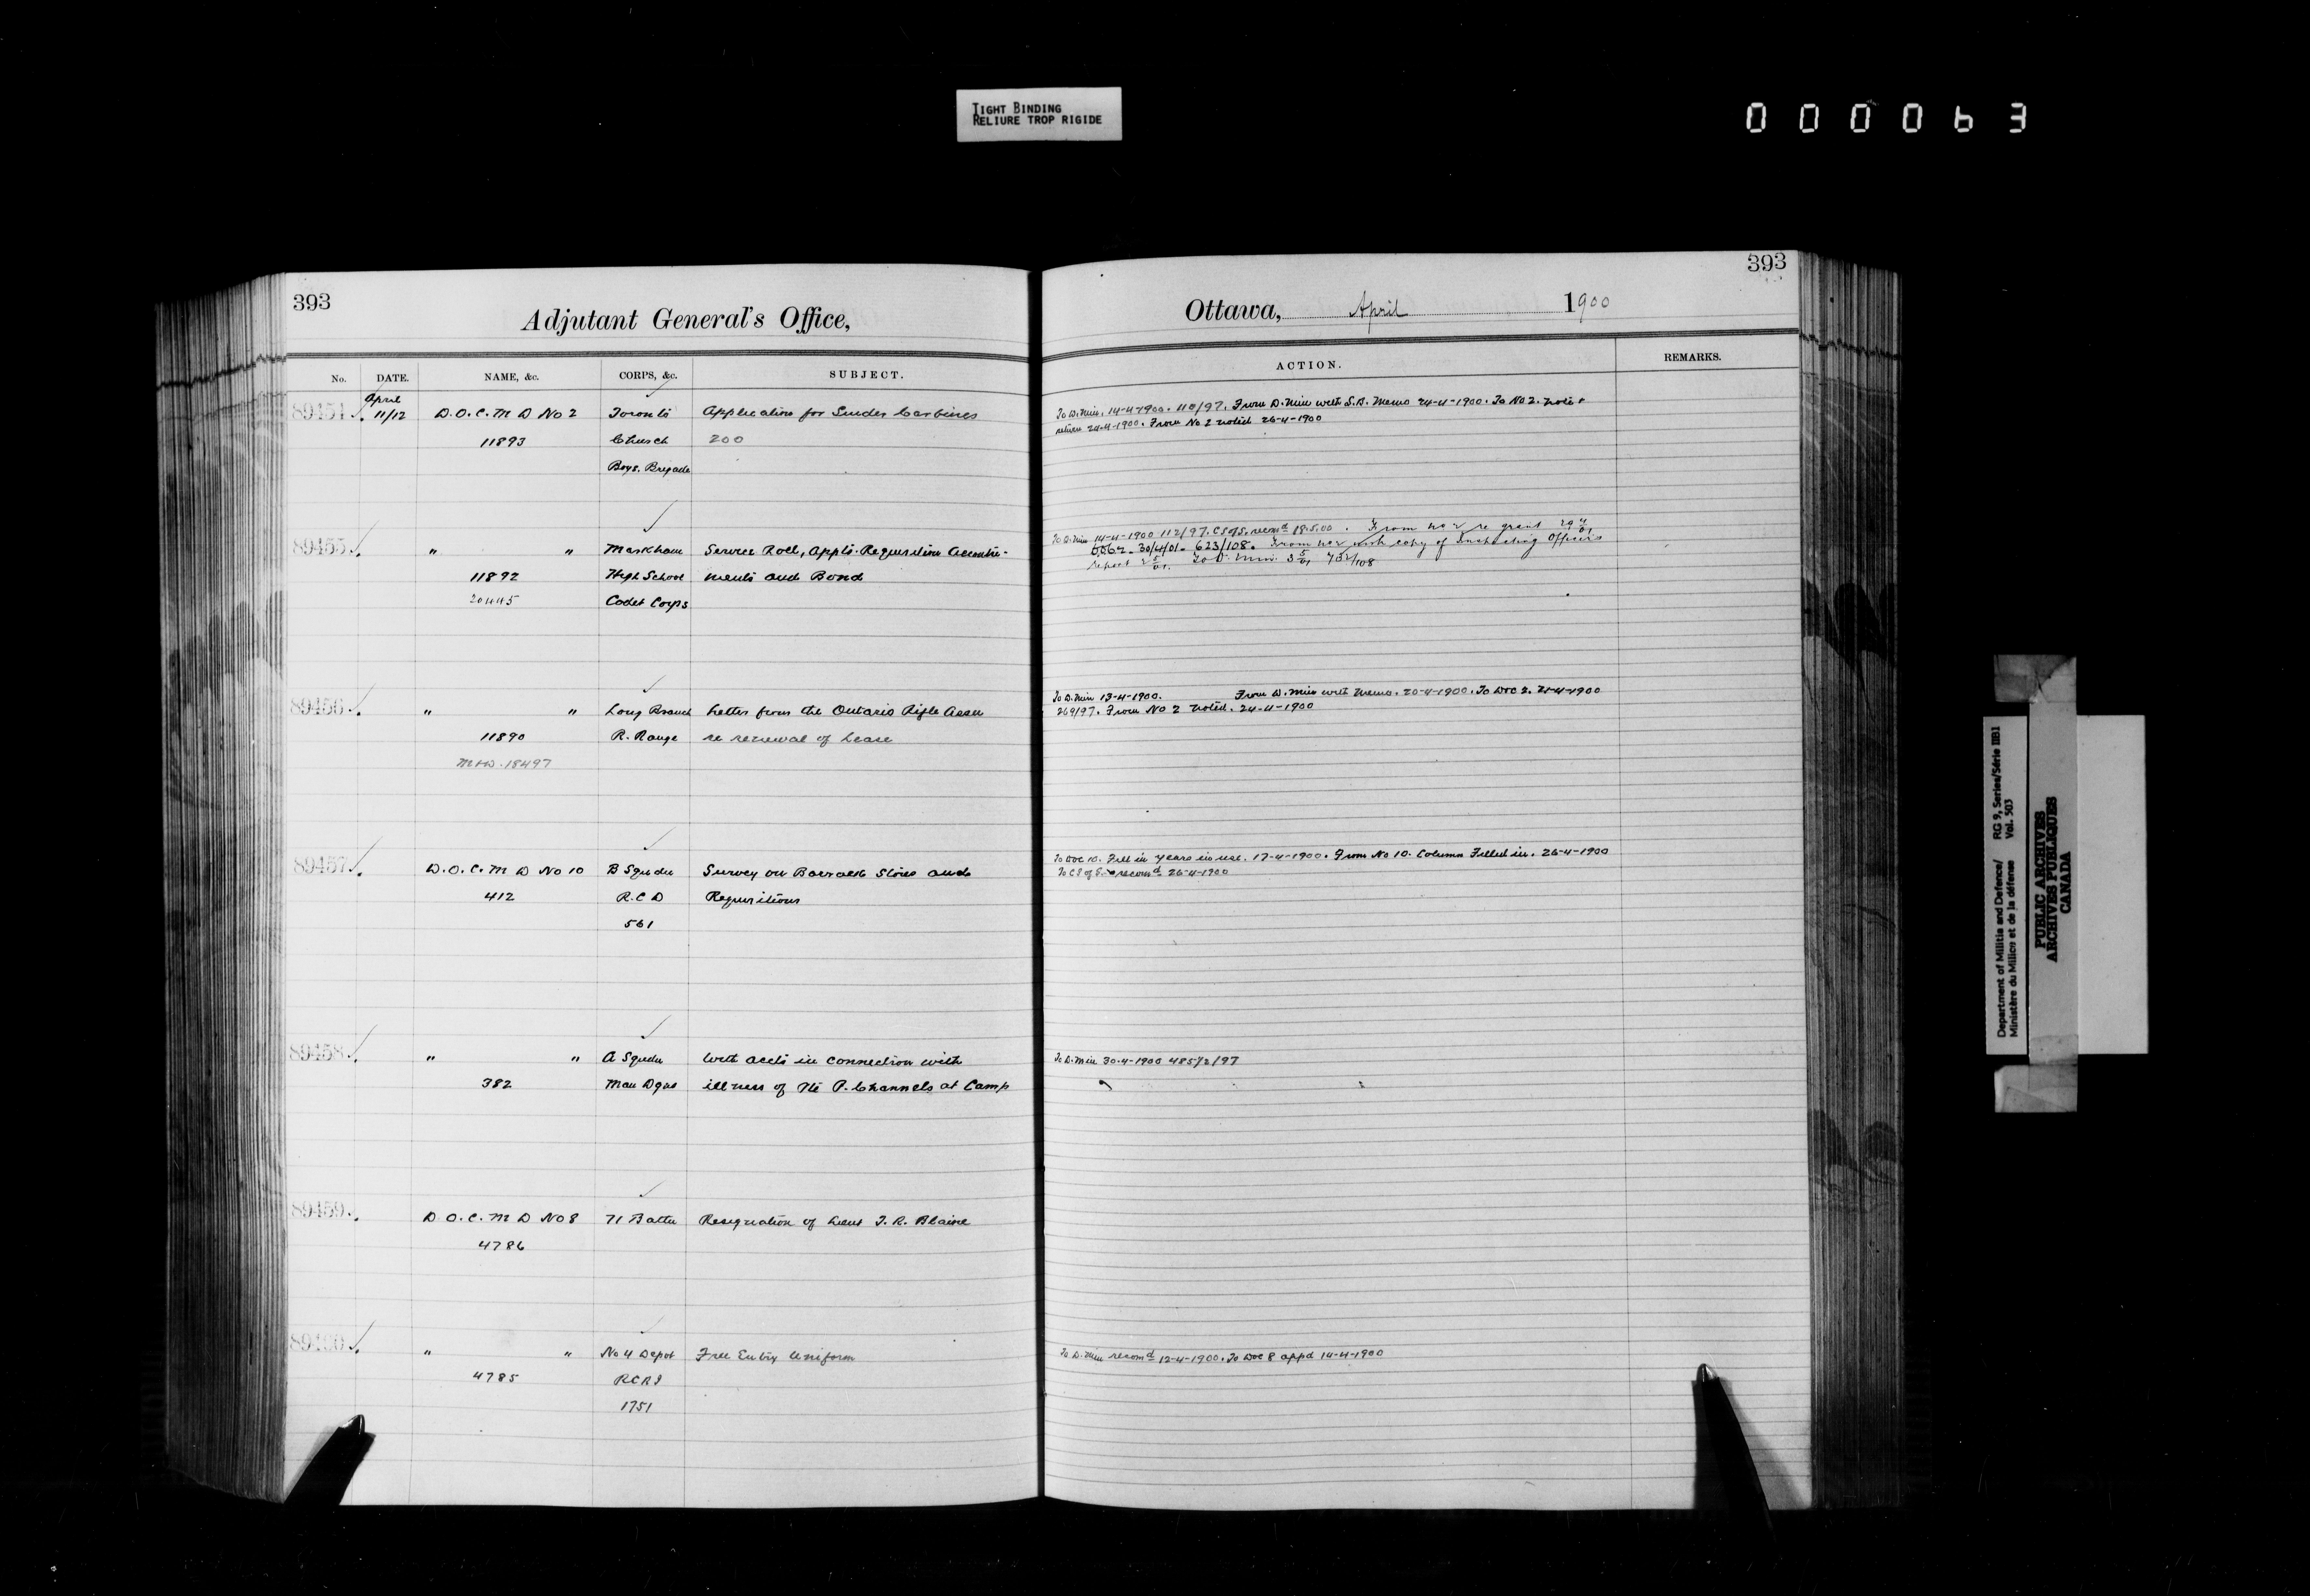 TIGHT BINDING
RELIURE TROP RIGIDE
000063
393
Adjutant General's Office,
No. DATE. NAME, &c. CORPS, &c. SUBJECT.
April
89454 11/12 D.O.C. M D No 2 Toronto Application for Snider Carbines
11893 Church 200
Boys. Brigade
89455 " " Markham Service Roll, Appts. Requisition Accoutre-
11892 High School ments and Bond
Cadet Corps
89456 " " Long Branch Letter from the Ontario Rifle Assn
11890 R. Range re renewal of Lease
18497
89457 D.O.C. M D No 10 B Sqdn Survey on Barrack Stores and
412 R.C D Requisitions
561
89458 " " A Sqdn With accts in connection with
382 Man Dgns illness of Pte P. Channels at Camp
89459 D.O.C. M D No 8 71 Battn Resignation of Lieut T. R. Blaine
4786
89460 " " No 4 Depot Free Entry Uniform
4785 RCRI
1751
393
Ottawa, April 1900
ACTION. REMARKS.
To D. Min. 14-4-1900. 110/97. From D. Min with S.B. Memo 24-4-1900. To No 2. note &
return 24-4-1900. From No 2 noted 26-4-1900
To D. Min 14-4-1900 112/97. C S of S. recomd 18.5.00. From No 2 re grant 29 4/01
30/4/01 - 623/108. From No 2 with copy of Inspecting Officers
report 2 5/01. To D. Min. 3 5/01 732/108
To D. Min 13-4-1900. From D. Min with Memo. 20-4-1900. To DOC 2. 21-4-1900
269/97. From No 2 noted. 24-4-1900
To DOC 10. Fill in years in use. 17-4-1900. From No 10. Column Filled in. 26-4-1900
To C S of S. recomd 26-4-1900
To D. Min 30-4-1900 485/2/97
To D. Min recomd 12-4-1900. To DOC 8 appd 14-4-1900
Department of Militia and Defence/ RG 9, Series/Série IIB1
Ministère du Milice et de la défense Vol. 503
PUBLIC ARCHIVES
ARCHIVES PUBLIQUES
CANADA